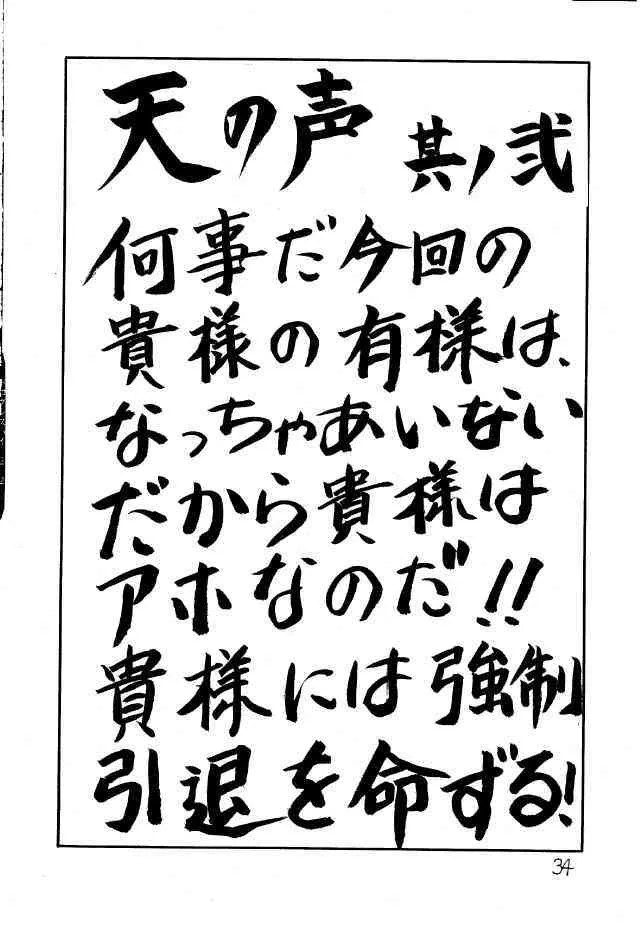 天の声 其ノ弐
何事だ今回の
貴様の有様は、
なっちゃあいない
だから貴様は
アホなのだ!!
貴様には強制
引退を命ずる!
34